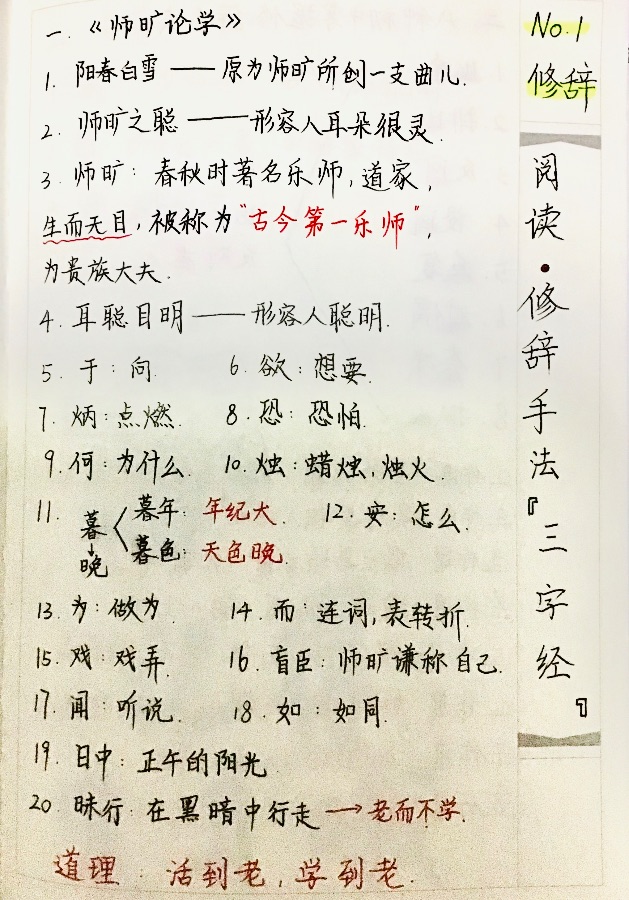 一.《师旷论学》
1. 阳春白雪 —— 原为师旷所创一支曲儿.
2. 师旷之聪 —— 形容人耳朵很灵.
3. 师旷: 春秋时著名乐师, 道家,
生而无目, 被称为"古今第一乐师",
为贵族大夫.
4. 耳聪目明 —— 形容人聪明.
5. 于: 向. 6. 欲: 想要.
7. 炳: 点燃. 8. 恐: 恐怕.
9. 何: 为什么. 10. 烛: 蜡烛, 烛火.
11. 暮→晚 暮年: 年纪大. 12. 安: 怎么.
暮色: 天色晚.
13. 为: 做为. 14. 而: 连词, 表转折.
15. 戏: 戏弄. 16. 盲臣: 师旷谦称自己.
17. 闻: 听说. 18. 如: 如同.
19. 日中: 正午的阳光.
20. 昧行: 在黑暗中行走 → 老而不学.
道理: 活到老, 学到老.
No.1
修辞
阅读·修辞手法『三字经』